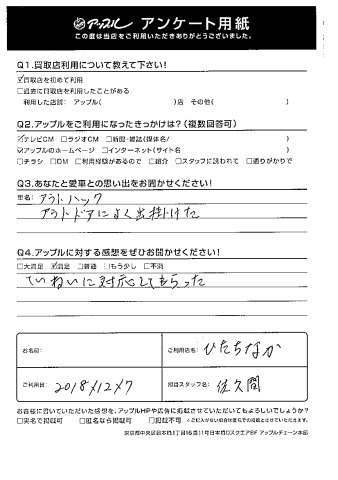 アップル アンケート用紙
この度は当店をご利用いただきありがとうございました。
Q1.買取店利用について教えて下さい!
☑買取店を初めて利用
□過去に買取店を利用したことがある
利用した店舗: アップル( )店 その他( )
Q2.アップルをご利用になったきっかけは?(複数回答可)
☑テレビCM □ラジオCM □新聞・雑誌(媒体名/ )
☑アップルのホームページ □インターネット(サイト名 )
□チラシ □DM □利用経験があるので □紹介 □スタッフに誘われて □通りがかりで
Q3.あなたと愛車との思い出をお聞かせください!
車名: アウトバック
アウトドアによく出掛けた
Q4.アップルに対する感想をぜひお聞かせください!
□大満足 ☑満足 □普通 □もう少し □不満
ていねいに対応してもらった
お名前:
ご利用店名: ひたちなか
ご利用日: 2018/12/7
担当スタッフ名: 佐久間
お客様に書いていただいた感想を、アップルHPや広告に掲載させていただいてもよろしいでしょうか?
□実名で掲載可 □匿名なら掲載可 □掲載不可 ※ご記入がない場合は匿名での掲載とさせていただきます。
東京都中央区日本橋1丁目16番11号日本橋Dスクエア8F アップルチェーン本部